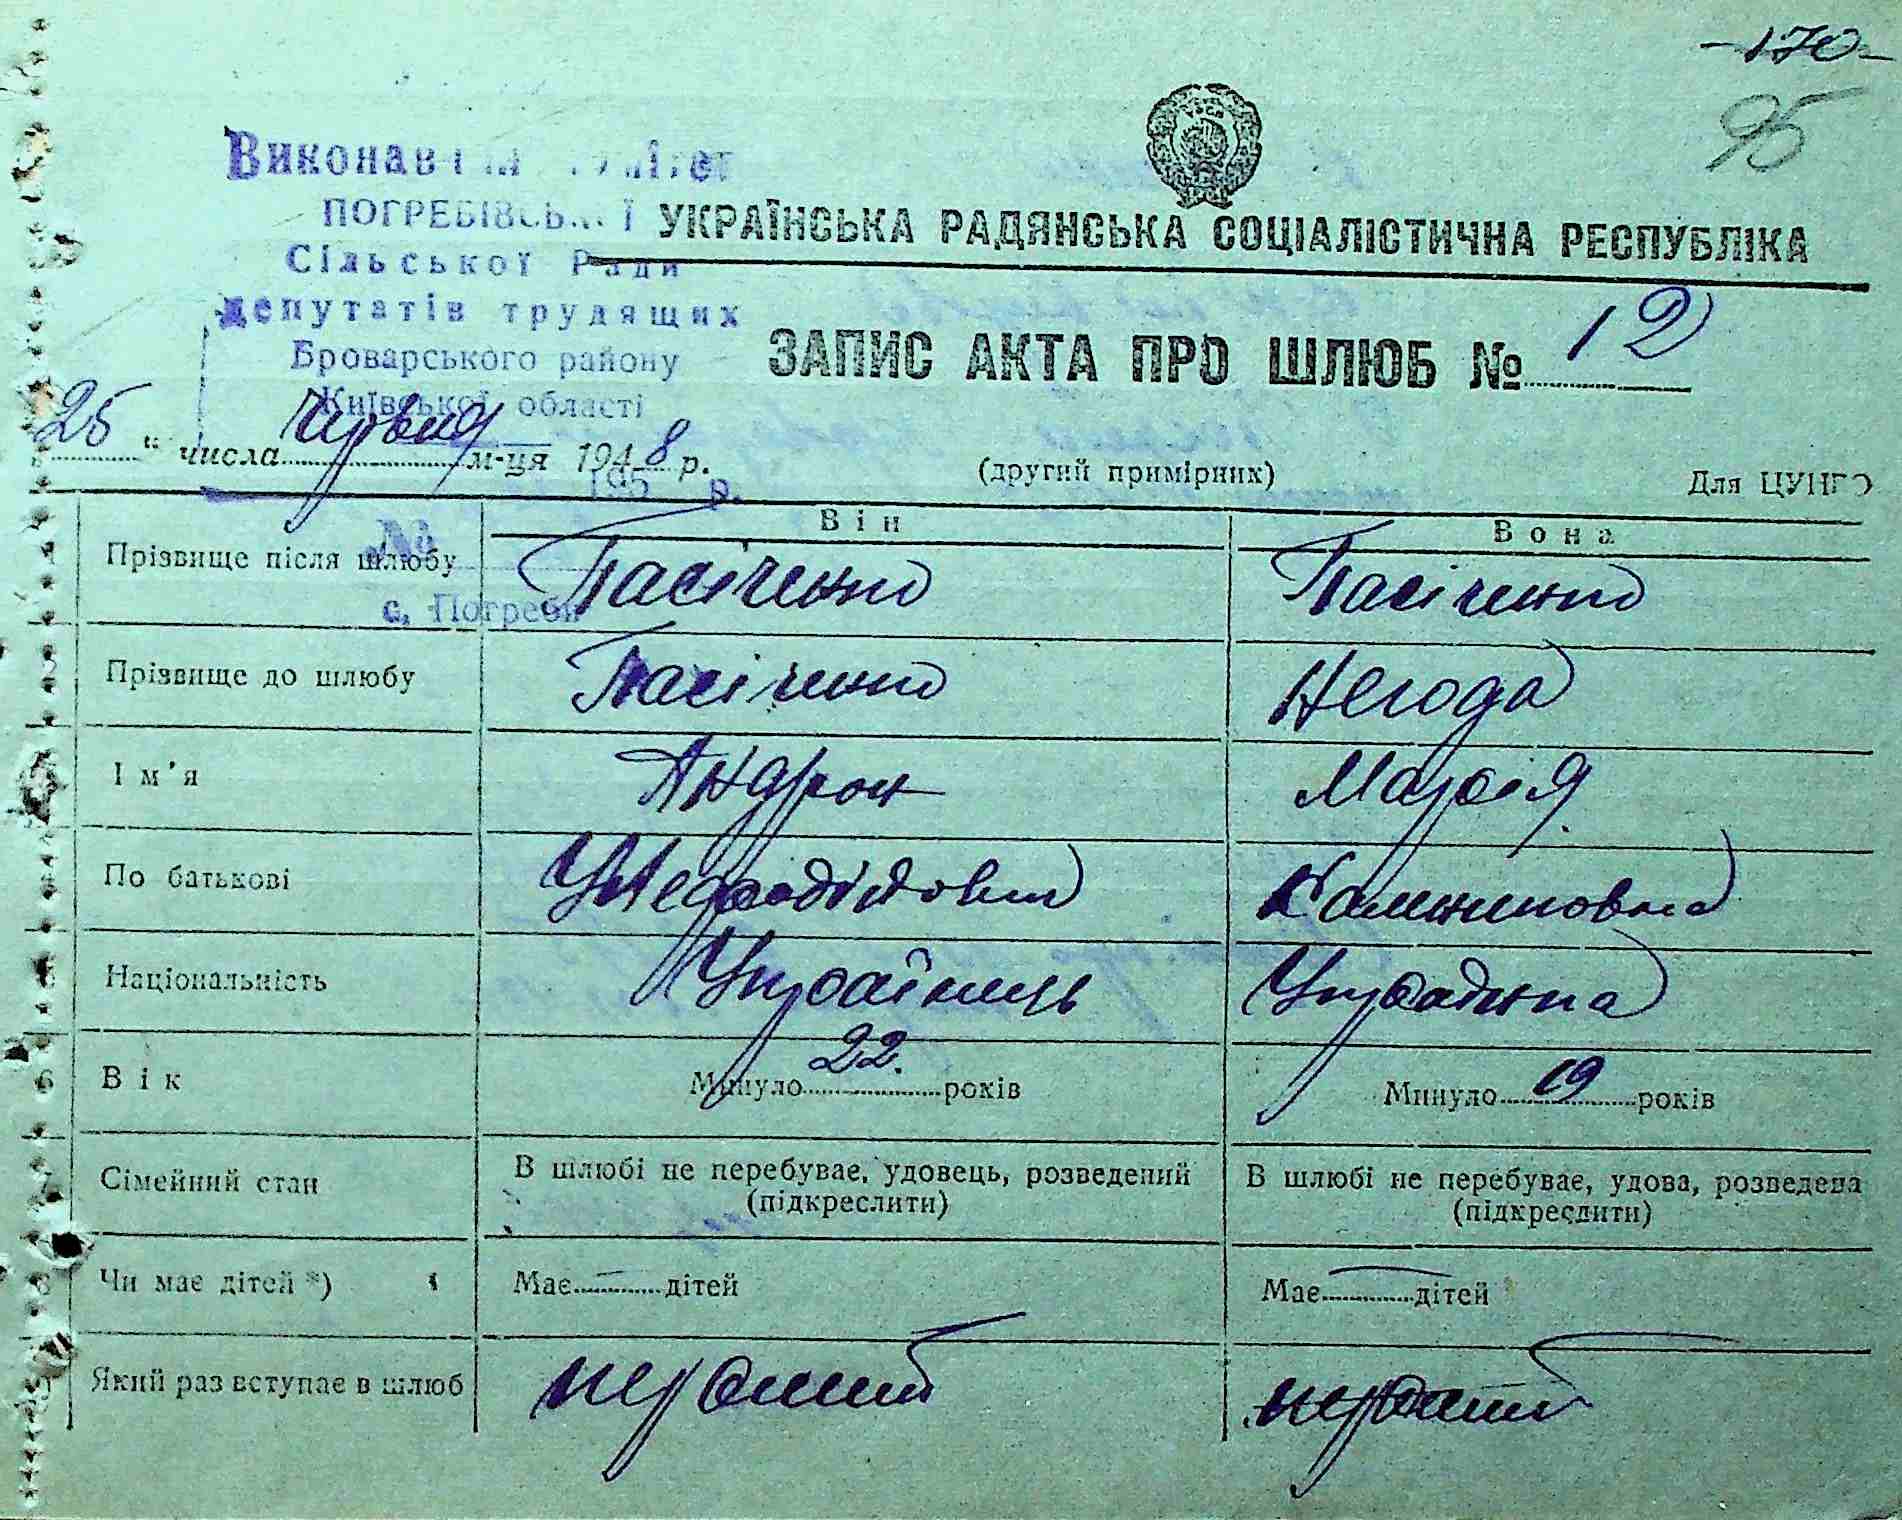 -170-
95
УКРАЇНСЬКА РАДЯНСЬКА СОЦІАЛІСТИЧНА РЕСПУБЛІКА
ПОГРЕБІВСЬКОЇ
Сільської Ради
депутатів трудящих
Броварського району
Київської області
ЗАПИС АКТА ПРО ШЛЮБ № 12
25 " числа червня м-ця 1948 р.
195 р.
(другий примірник)
Для ЦУНГО
№
с. Погреби
Він Вона
1 Прізвище після шлюбу Пасіченко Пасіченко
2 Прізвище до шлюбу Пасіченко Негода
3 Ім'я Андрон Марія
4 По батькові
5 Національність Українець Українка
6 Вік Минуло 22. років Минуло 19 років
7 Сімейний стан В шлюбі не перебуває, удовець, розведений (підкреслити) В шлюбі не перебуває, удова, розведена (підкреслити)
8 Чи має дітей *) Має — дітей Має — дітей
9 Який раз вступає в шлюб перший перший